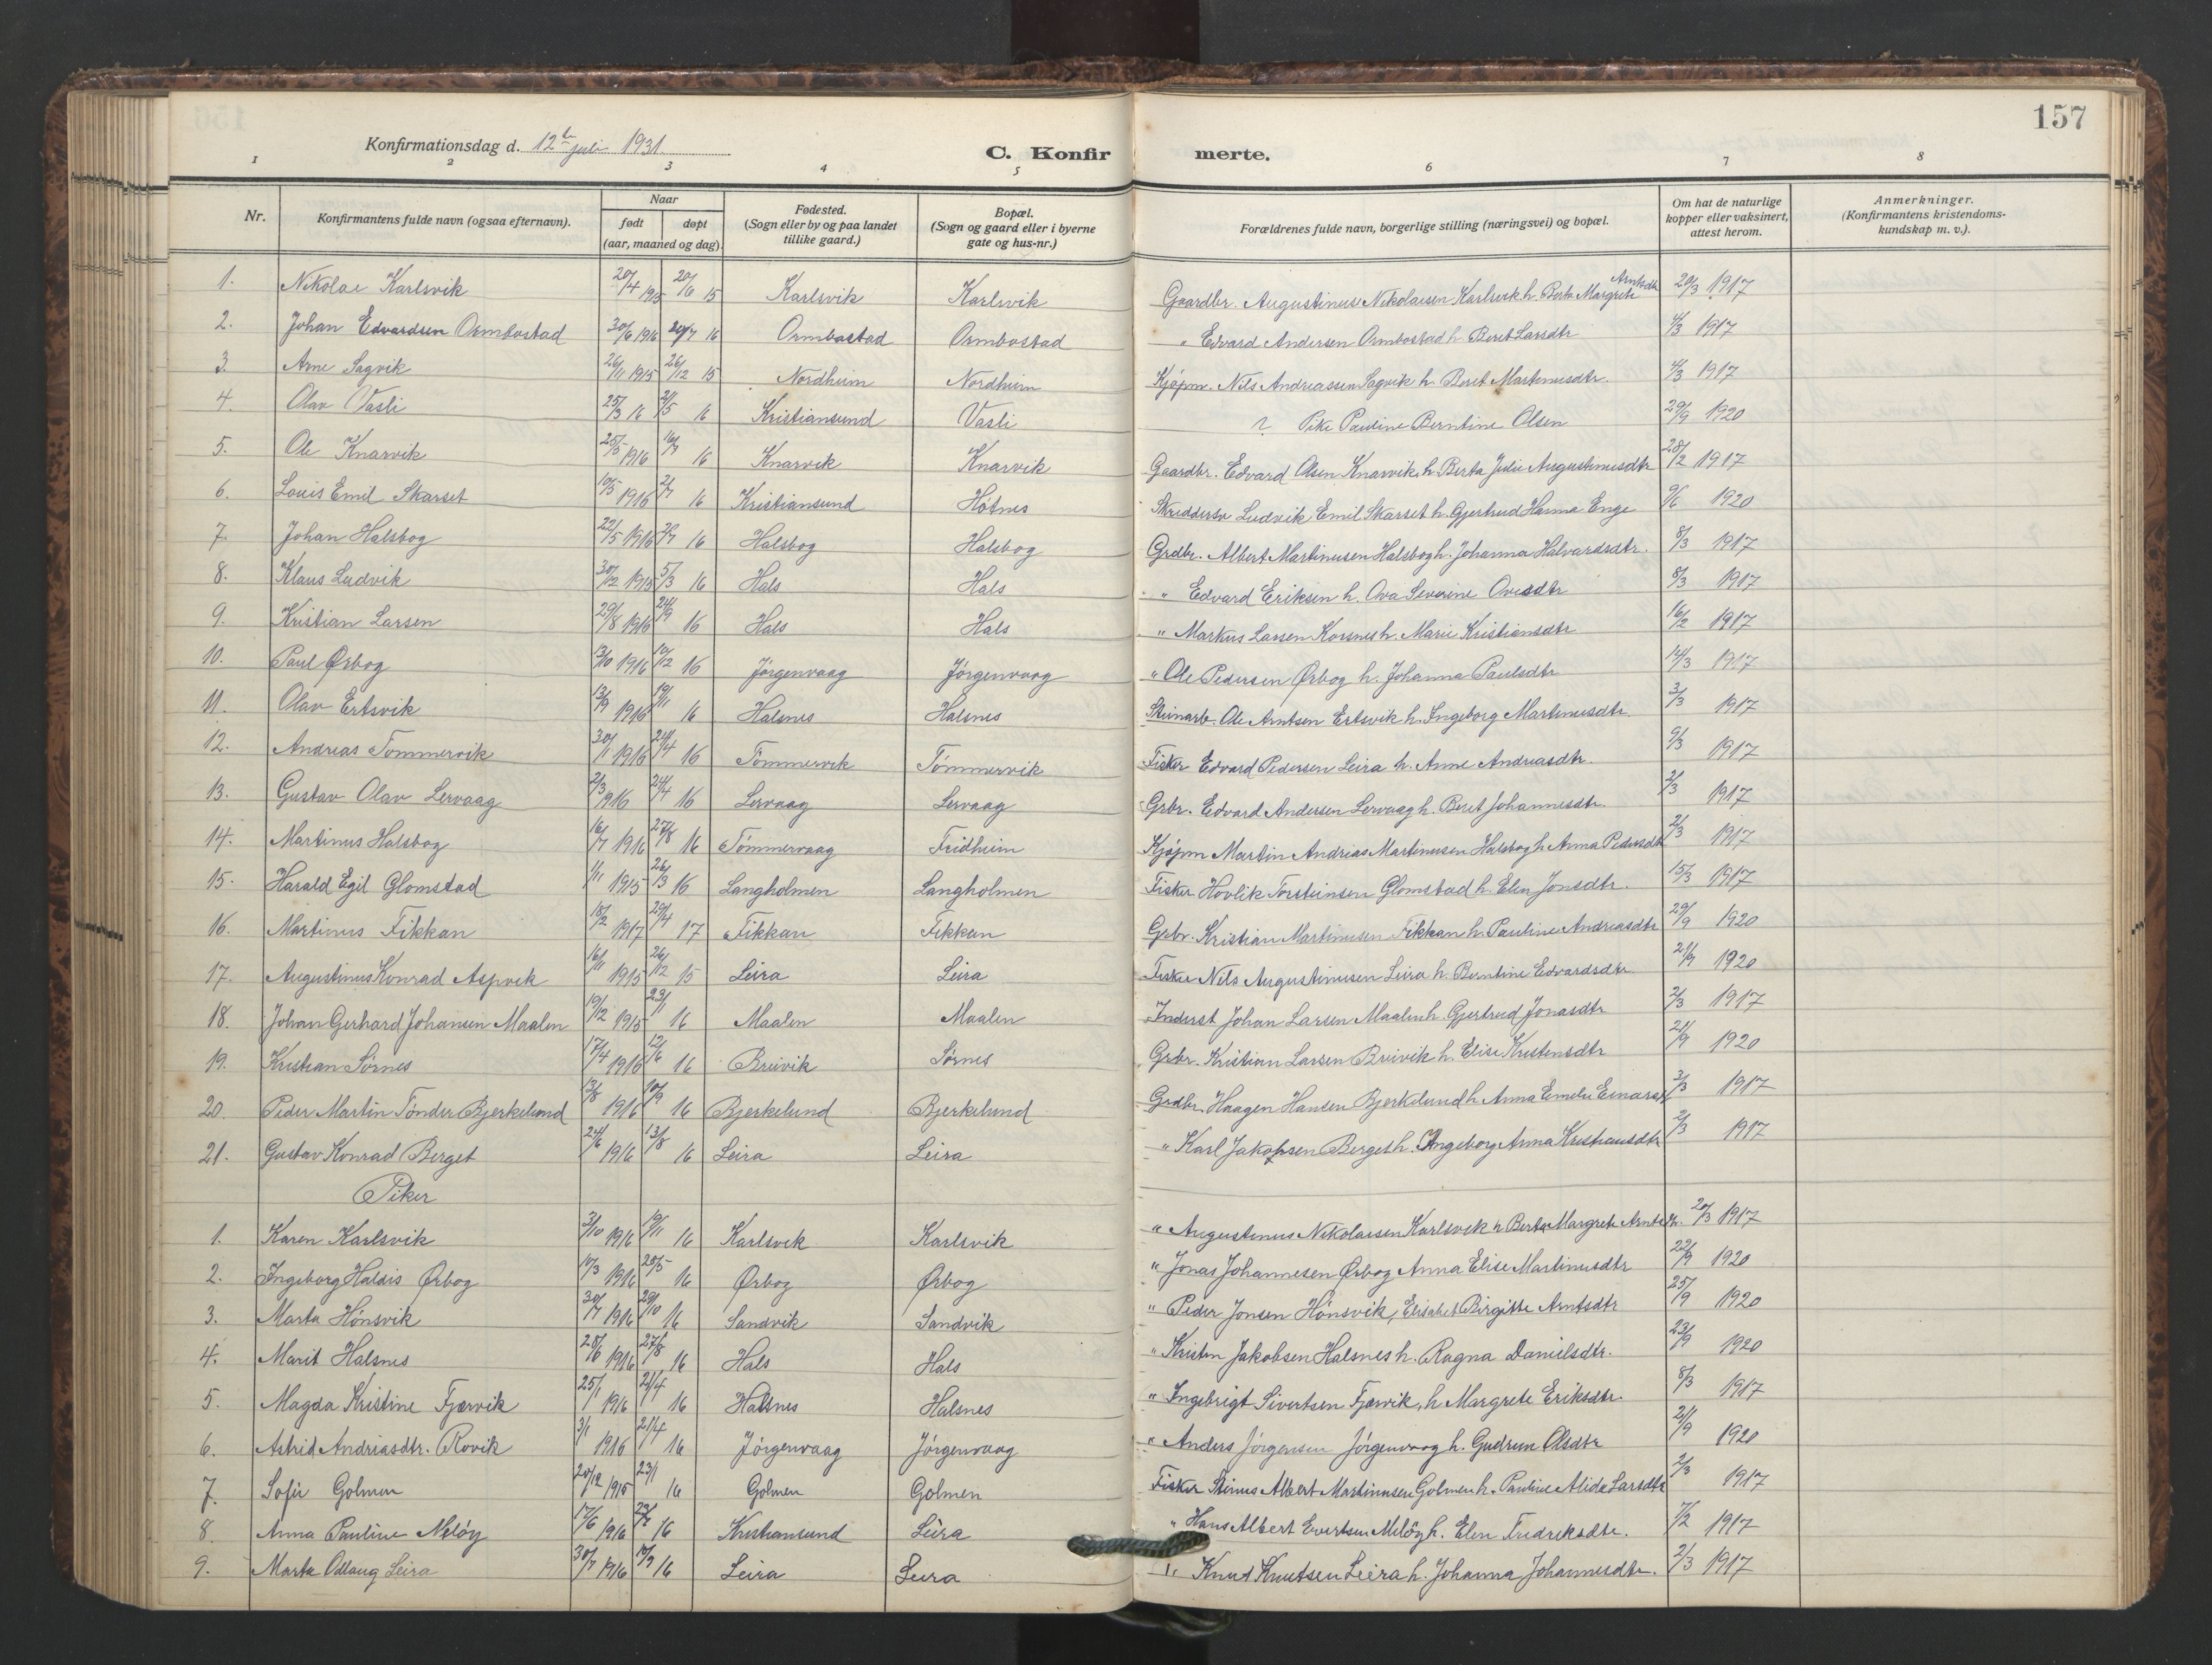 157
Konfirmationsdag d. 12te juli 1931.
C. Konfir merte.
1 2 3 4 5 6 7 8
Nr. Konfirmantens fulde navn (ogsaa efternavn). Naar født døpt (aar, maaned og dag). Fødested. (Sogn eller by og paa landet tillike gaard.) Bopæl. (Sogn og gaard eller i byerne gate og hus-nr.) Forældrenes fulde navn, borgerlige stilling (næringsvei) og bopæl. Om hat de naturlige kopper eller vaksinert, attest herom. Anmerkninger. (Konfirmantens kristendomskundskap m. v.).
1. Nikolai Karlsvik 20/4 1915 20/6 15 Karlsvik Karlsvik Gaardbr. Augustinus Nikolaisen Karlsvik h. Berta Margrete Arntsdtr 20/3 1917
2. Johan Edvardsen Ormbostad 30/6 1916 20/7 16 Ormbostad Ormbostad " Edvard Andersen Ormbostad h. Beret Larsdtr 4/3 1917
3. Arne Sagvik 26/11 1915 26/12 15 Nordheim Nordheim Kjøpm. Nils Andreassen Sagvik h. Beret Martinusdtr. 4/3 1917
4. Olav Vasli 25/3 16 21/5 16 Kristiansund Vasli ? Pike Pauline Berntine Olsen 29/9 1920
5. Ole Knarvik 25/5 1916 16/7 16 Knarvik Knarvik Gaardbr. Edvard Olsen Knarvik h. Berta Julie Augustinusdtr 28/2 1917
6. Louis Emil Skarset 10/5 1916 2/7 16 Kristiansund Hótnes Skreddersv Ludvik Emil Skarset h. Gjertrud Hanna Enge 9/6 1920
7. Johan Halsbog 22/5 1916 2/7 16 Halsbog Halsbog Grdbr. Albert Martinusen Halsbog h. Johanna Halvardsdtr. 8/3 1917
8. Klaus Ludvik 30/12 1915 5/3 16 Hals Hals " Edvard Eriksen h. Ova Severine Ovesdtr 8/3 1917
9. Kristian Larsen 29/8 1916 24/9 16 Hals Hals " Markus Larsen Korsnes h. Marie Kristiansdtr 16/2 1917
10. Paul Ørbog 3/10 1916 10/12 16 Jørgenvaag Jørgenvaag " Ole Pedersen Ørbog h. Johanna Paulsdtr 14/3 1917
11. Olav Ertsvik 13/9 1916 19/11 16 Halsnes Halsnes Steinarb. Ole Arntsen Ertsvik h. Ingeborg Martinusdtr. 3/3 1917
12. Andreas Tømmervik 30/1 1916 24/4 16 Tømmervik Tømmervik Fisker Edvard Pedersen Leira h. Anne Andreasdtr. 9/3 1917
13. Gustav Olav Lervaag 2/3 1916 24/4 16 Lervaag Lervaag Grbr. Edvard Andersen Lervaag h. Beret Johannesdtr. 2/3 1917
14. Martinus Halsbog 16/7 1916 27/8 16 Tømmervaag Fridheim Kjøpm Martin Andreas Martinusen Halsbog h Anna Pedersdtr 2/3 1917
15. Harald Egil Glomstad 1/11 1915 26/3 16 Langholmen Langholmen Fisker Hovlik Torsteinsen Glomstad h. Elen Jonsdtr. 15/3 1917
16. Martinus Fikkan 18/2 1917 29/4 17 Fikkan Fikkan Grbr. Kristian Martinusen Fikkan h. Pauline Andreasdtr 29/9 1920
17. Augustinus Konrad Aspvik 16/11 1915 26/12 15 Leira Leira Fisker Nils Augustinusen Leira h. Berntine Edvardsdtr 21/9 1920
18. Johan Gerhard Johansen Maalen 19/12 1915 23/1 16 Maalen Maalen Inderst Johan Larsen Maalen h. Gjertrud Jonasdtr 2/3 1917
19. Kristian Sørnes 17/4 1916 12/6 16 Breivik Sørnes Grbr. Kristian Larsen Breivik h. Elise Kristensdtr 21/9 1920
20. Peder Martin Tønder Bjerkelund 13/8 1916 10/9 16 Bjerkelund Bjerkelund Grdbr. Haagen Hansen Bjerkelund h Anna Emelie 3/3 1917
21. Gustav Konrad Berget 24/6 1916 13/8 16 Leira Leira " Karl Jakobsen Berget h. Ingeborg Anna Kristiansdtr 2/3 1917
Piker
1. Karen Karlsvik 3/10 1916 19/11 16 Karlsvik Karlsvik " Augustinus Nikolaisen Karlsvik h Berta Margrete Arntsdtr. 20/3 1917
2. Ingeborg Haldis Ørbog 17/3 1916 28/5 16 Ørbog Ørbog " Jonas Johannesen Ørbog Anna Elise Martinusdtr 22/9 1920
3. Marta Hønsvik 30/7 1916 29/10 16 Sandvik Sandvik " Peder Jonsen Hønsvik, Elisabet Birgitte Arntsdtr 25/9 1920
4. Marit Halsnes 28/6 1916 27/8 16 Hals Hals " Kristen Jakobsen Halsnes h. Ragna Danielsdtr. 23/9 1920
5. Magda Kristine Fjærvik 25/1 1916 24/4 16 Halsnes Halsnes " Ingebrigt Sivertsen Fjærvik, h Margrete Eriksdtr. 8/3 1917
6. Astrid Andreasdtr. Rovik 3/1 1916 24/4 16 Jørgenvaag Jørgenvaag " Anders Jørgensen Jørgenvaag h. Gudrun Olsdtr 21/9 1920
7. Sofie Golmen 20/12 1915 23/1 16 Golmen Golmen Fisker Stinus Albert Martinusen Golmen h. Pauline Alida Larsdtr 2/3 1917
8. Anna Pauline Meløy 17/6 1916 16 Kristiansund Leira " Hans Albert Evertsen Meløy h. Elen Fredriksdtr. 7/2 1917
9. Marta Odlaug Leira 30/7 1916 16 Leira Leira " Knut Knutsen Leira h. Johanna Johannesdtr. 2/3 1917